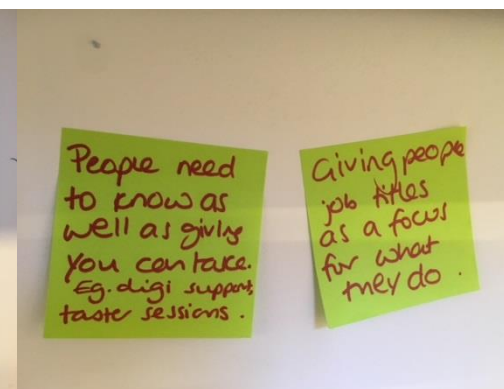 People need
to know as
well as giving
you can take.
Eg. digi support,
taster sessions.
Giving people
job titles
as a focus
for what
they do.